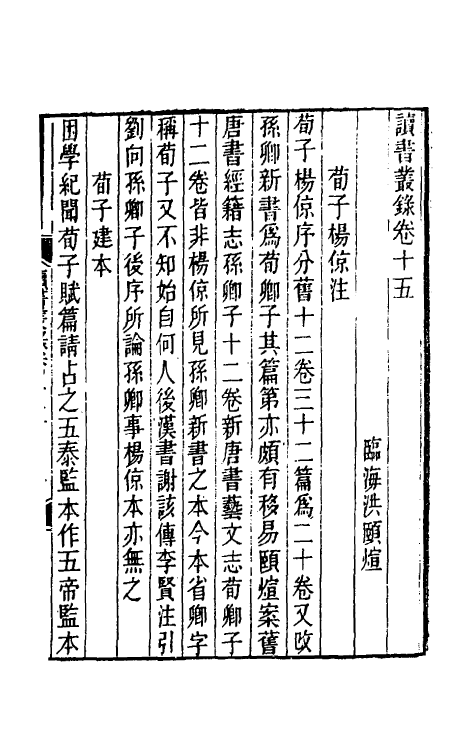 讀書叢錄卷十五
臨海洪頤煊
荀子楊倞注
荀子楊倞序分舊十二卷三十二篇爲二十卷又改
孫卿新書爲荀卿子其篇第亦頗有移易頤煊案舊
唐書經籍志孫卿子十二卷新唐書藝文志荀卿子
十二卷皆非楊倞所見孫卿新書之本今本省卿字
稱荀子又不知始自何人後漢書謝該傳李賢注引
劉向孫卿子後序所論孫卿事楊倞本亦無之
荀子建本
困學紀聞荀子賦篇請占之五泰監本作五帝監本